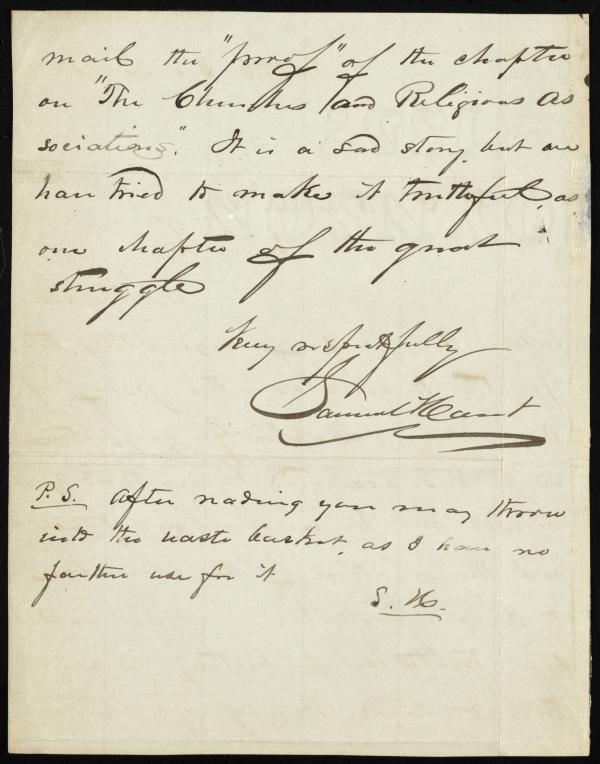 mail the "proof" of the chapter
on "The Churches and Religious As
sociations". It is a sad story, but we
have tried to make it truthful, as
one chapter of the great
struggle
Very respectfully
Samuel
P.S. After reading you may throw
into the waste basket, as I have no
further use for it
S.